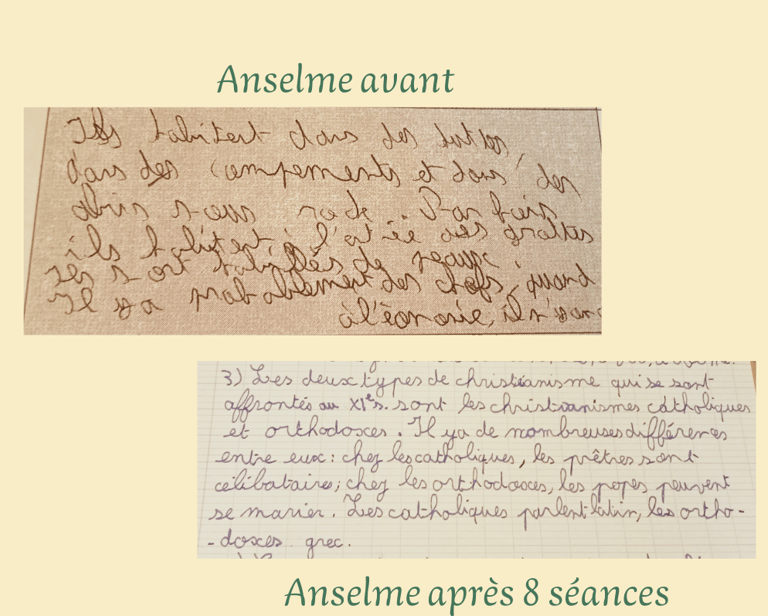 Anselme avant
Ils habitent dans des huttes,
dans des campements et dans des
abris sous roche. Parfois
ils habitent à l'entrée des grottes
habillés de peaux
Il y a probablement des chefs, quand
à l'économie, ils
3) Les deux types de christianisme qui se sont
affrontés au XIe s. sont les christianismes catholiques
et orthodoxes. Il y a de nombreuses différences
entre eux : chez les catholiques, les prêtres sont
célibataires; chez les orthodoxes, les popes peuvent
se marier. Les catholiques parlent latin, les ortho-
-doxes grec.
Anselme après 8 séances